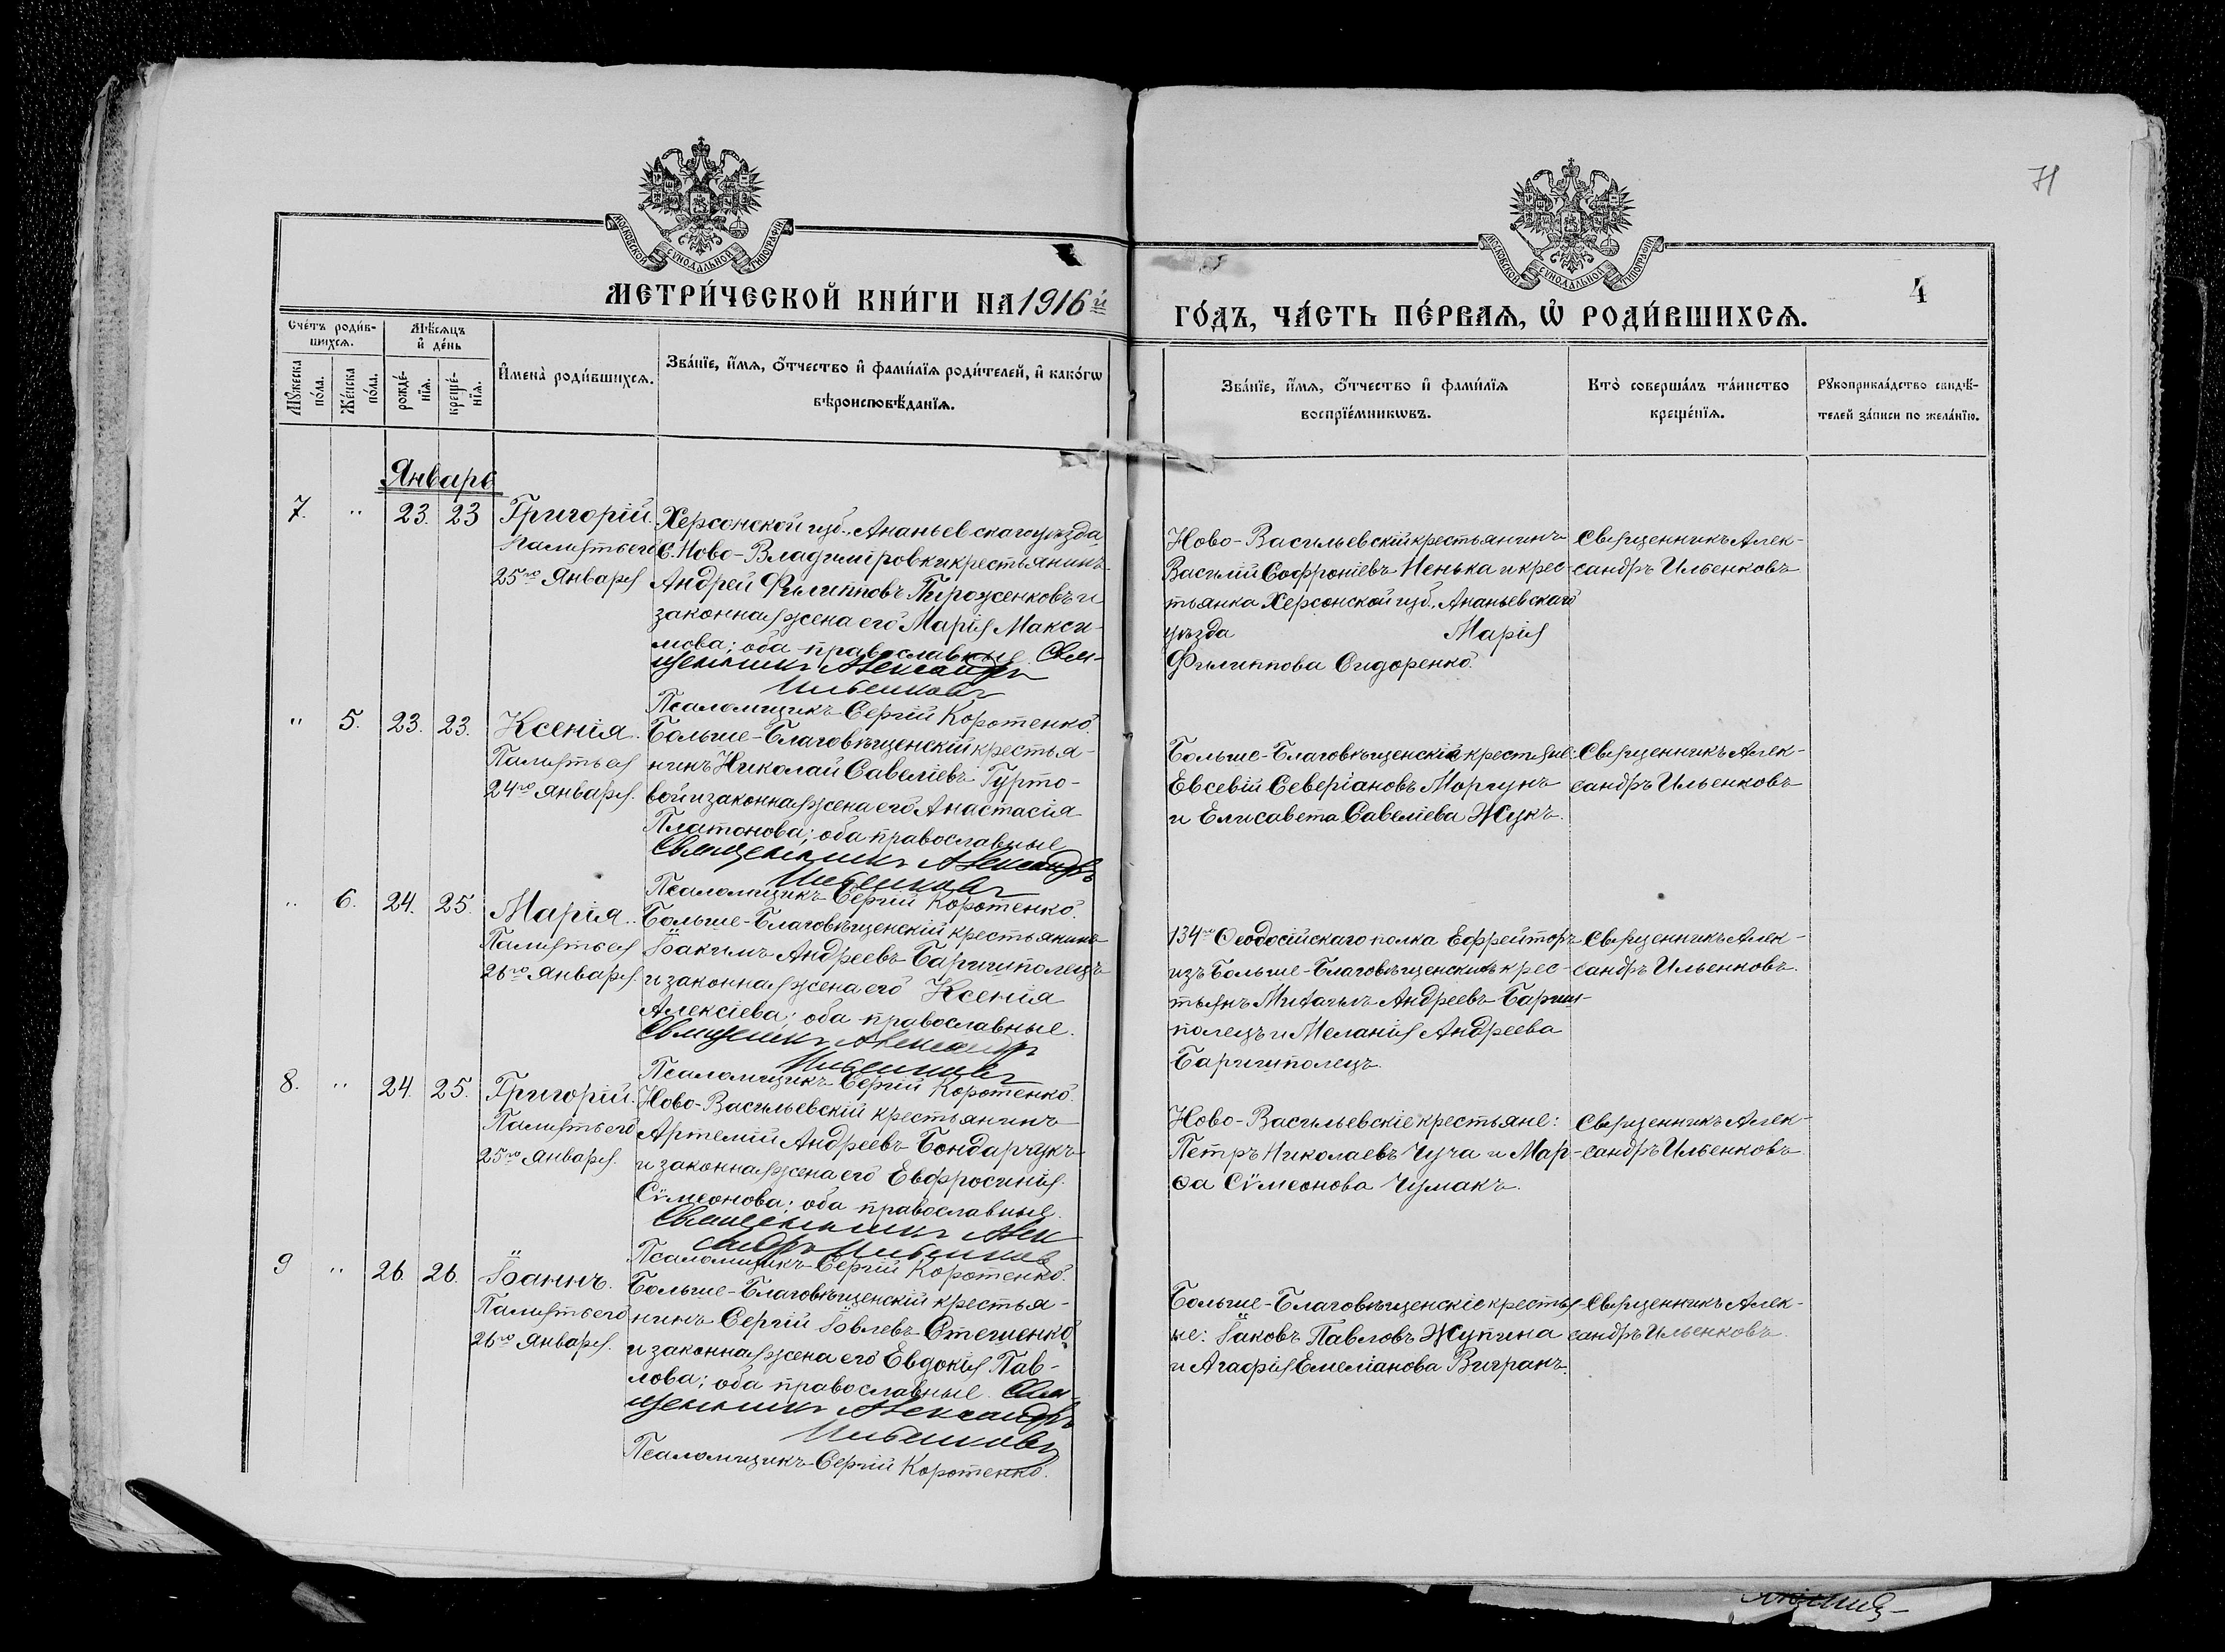 71
МОСКОВСКОЙ СΥНОДАЛЬНОЙ ТИПОГРАФІИ
МОСКОВСКОЙ СΥНОДАЛЬНОЙ ТИПОГРАФІИ
МЕТРИ́ЧЕСКОЙ КНИ́ГИ НА 1916 й
ГО́ДЪ, ЧА́СТЬ ПЕ́РВАЯ, Ѡ҆ РОДИ́ВШИХСЯ.
4
Сче́тъ роди́в-
шихся.
Мѣ́сяцъ
и҆ де́нь
Мꙋ́жеска
по́ла.
Же́нска
по́ла.
рожде́-
нїя.
креще́-
нїя.
И҆мена̀ роди́вшихся.
Зва́нїе, и҆́мя, о҆́тчество и҆ фами́лїя роди́телей, и҆ како́гѡ
вѣроисповѣ́данїя.
Зва́нїе, и҆́мя, о҆́тчество и҆ фами́лїя
воспрїе́мникѡвъ.
Кто̀ соверша́лъ та́инство
креще́нїя.
Рꙋкоприкла́дство свидѣ́-
телей за́писи по жела́нїю.
Январь
7. " 23. 23 Григорій.
Память его
25го Января
Херсонской губ., Ананьевскаго уѣзда,
с. Ново-Владимировки крестьянинъ
Андрей Филипповъ Пироженковъ и
законная жена его Марія Макси-
мова; оба православные. Свя-
щенникъ Александръ
Ильенковъ
Псаломщикъ Сергій Коротенко.
Ново-Васильевскій крестьянинъ
Василій Софроніевъ Ненька и крес-
тьянка Херсонской губ., Ананьевскаго
уѣзда Марія
Филиппова Сидоренко.
Священникъ Алек-
сандръ Ильенковъ
" 5. 23. 23. Ксенія.
Память ея
24го Января.
Больше-Благовѣщенскій крестья-
нинъ Николай Савеліевъ Гурто-
вой и законная жена его Анастасія
Платонова; оба православные
Священникъ Александръ
Ильенковъ
Псаломщикъ Сергій Коротенко.
Больше-Благовѣщенскіе крестьяне:
Евсевій Северіановъ Моргунъ
и Елисавета Савеліева Жукъ.
Священникъ Алек-
сандръ Ильенковъ
" 6. 24. 25. Марія.
Память ея
26го Января.
Больше-Благовѣщенскій крестьянинъ
Іоакимъ Андреевъ Баришполецъ
и законная жена его Ксенія
Алексіева; оба православные.
Священникъ Александръ
Ильенковъ
Псаломщикъ Сергій Коротенко.
134го Ѳеодосійскаго полка Ефрейторъ
изъ Больше-Благовѣщенскихъ крес-
тьянъ Михаилъ Андреевъ Бариш-
полецъ и Меланія Андреева
Баришполецъ.
Священникъ Алек-
сандръ Ильенковъ.
8. " 24. 25. Григорій.
Память его
25го Января.
Ново-Васильевскій крестьянинъ
Артемій Андреевъ Бондарчукъ
и законная жена его Евфросинія
Сѵмеонова; оба православные.
Священникъ Алек
сандръ Ильенковъ
Псаломщикъ Сергій Коротенко.
Ново-Васильевскіе крестьяне:
Петръ Николаевъ Чуча и Мар-
ѳа Сѵмеонова Чумакъ.
Священникъ Алек-
сандръ Ильенковъ
9 " 26. 26. Іоаннъ.
Память его
26го Января.
Больше-Благовѣщенскій крестья-
нинъ Сергій Іовлевъ Стешенко
и законная жена его Евдокія Пав-
лова; оба православные. Свя-
щенникъ Александръ
Ильенковъ
Псаломщикъ Сергій Коротенко.
Больше-Благовѣщенскіе крестья-
не: Іаковъ Павловъ Жупина
и Агафія Емеліанова Вигранъ.
Священникъ Алек-
сандръ Ильенковъ.